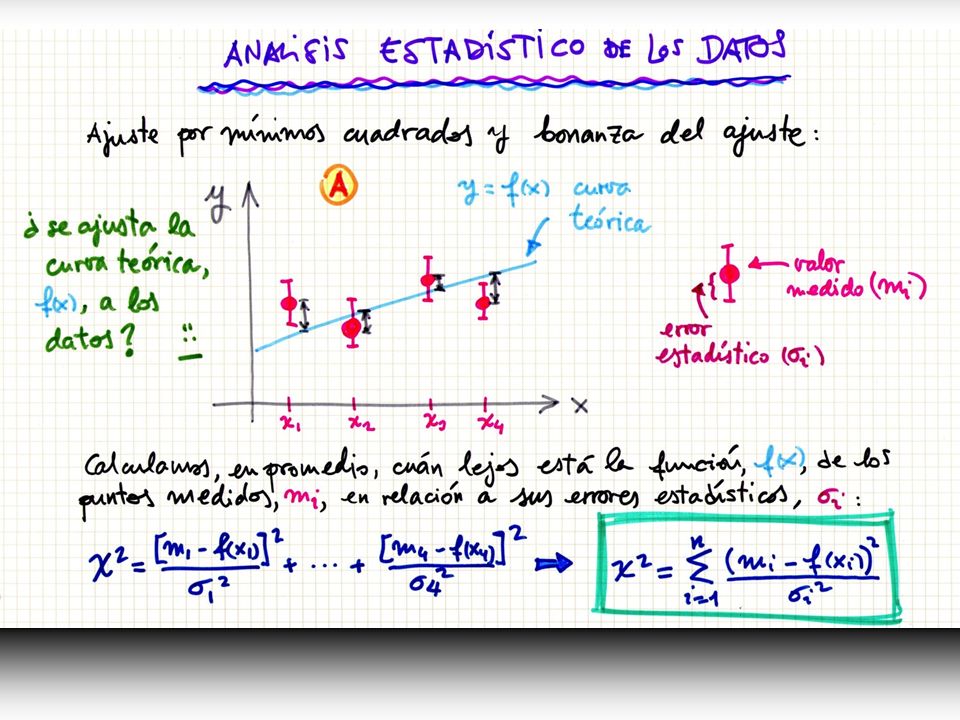 ANALISIS ESTADÍSTICO DE LOS DATOS
Ajuste por mínimos cuadrados y bonanza del ajuste:
y
A
y = f(x) curva
teórica
¿ se ajusta la
curva teórica,
f(x), a los
datos?
valor
medido (mi)
error
estadístico (σi)
x1 x2 x3 x4 x
Calculamos, en promedio, cuán lejos está la función, f(x), de los
puntos medidos, mi, en relación a sus errores estadísticos, σi:
χ² = [m1 - f(x1)]² / σ1² + ... + [m4 - f(x4)]² / σ4² ⇒ χ² = Σ_{i=1}^{n} (mi - f(xi))² / σi²